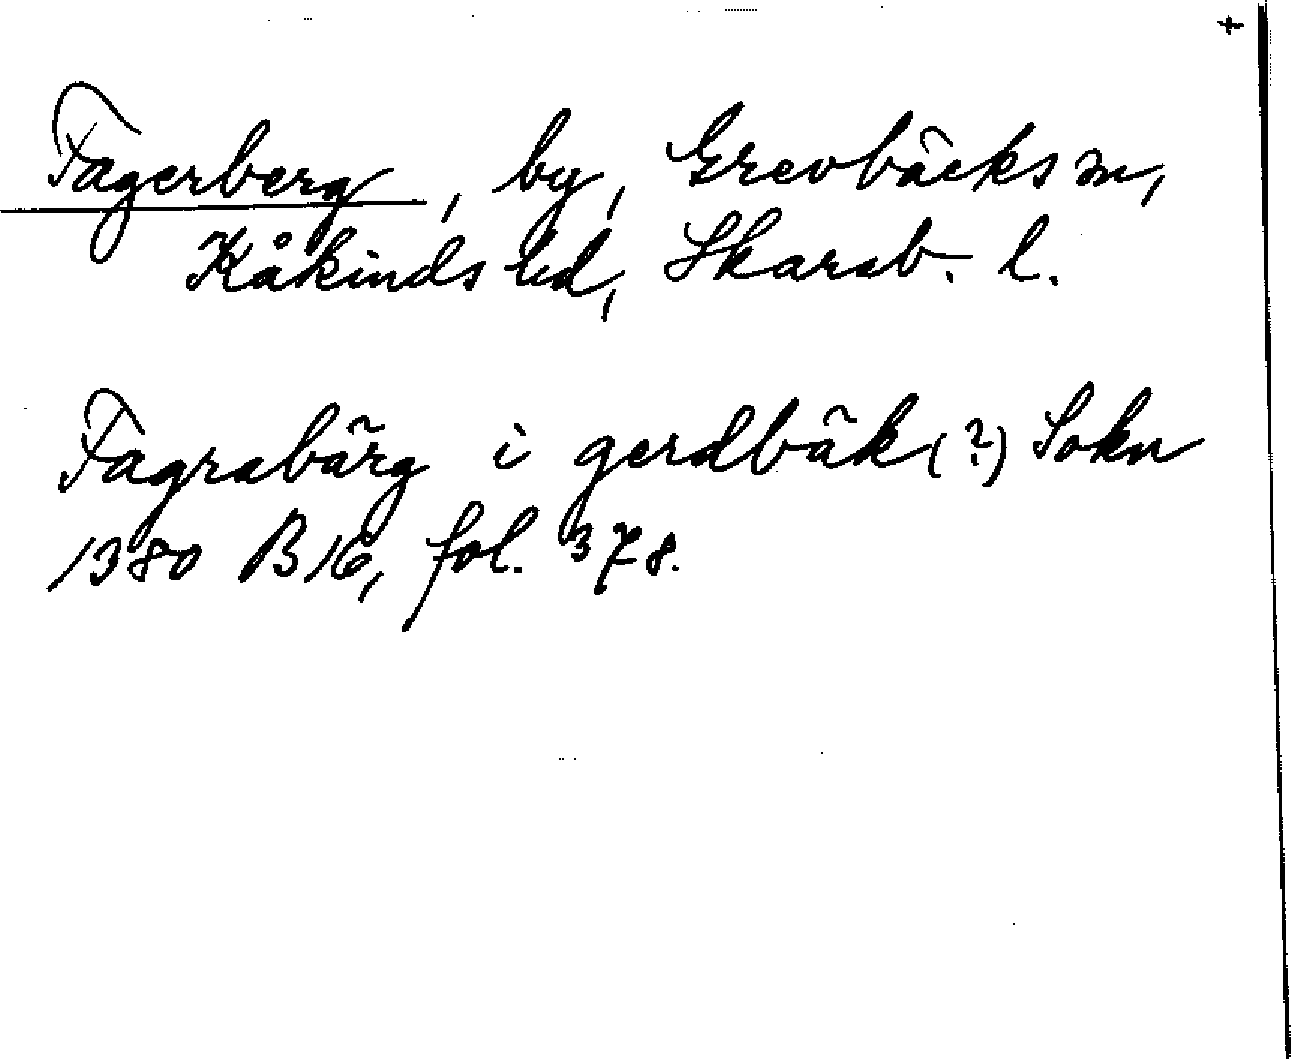 Fagerberg, by, Grevbäcks sn,
Kåkinds hd, Skarab. l.
Fagrabärg i gerdbäk (?) Sokn
1380 B16, fol. 378.